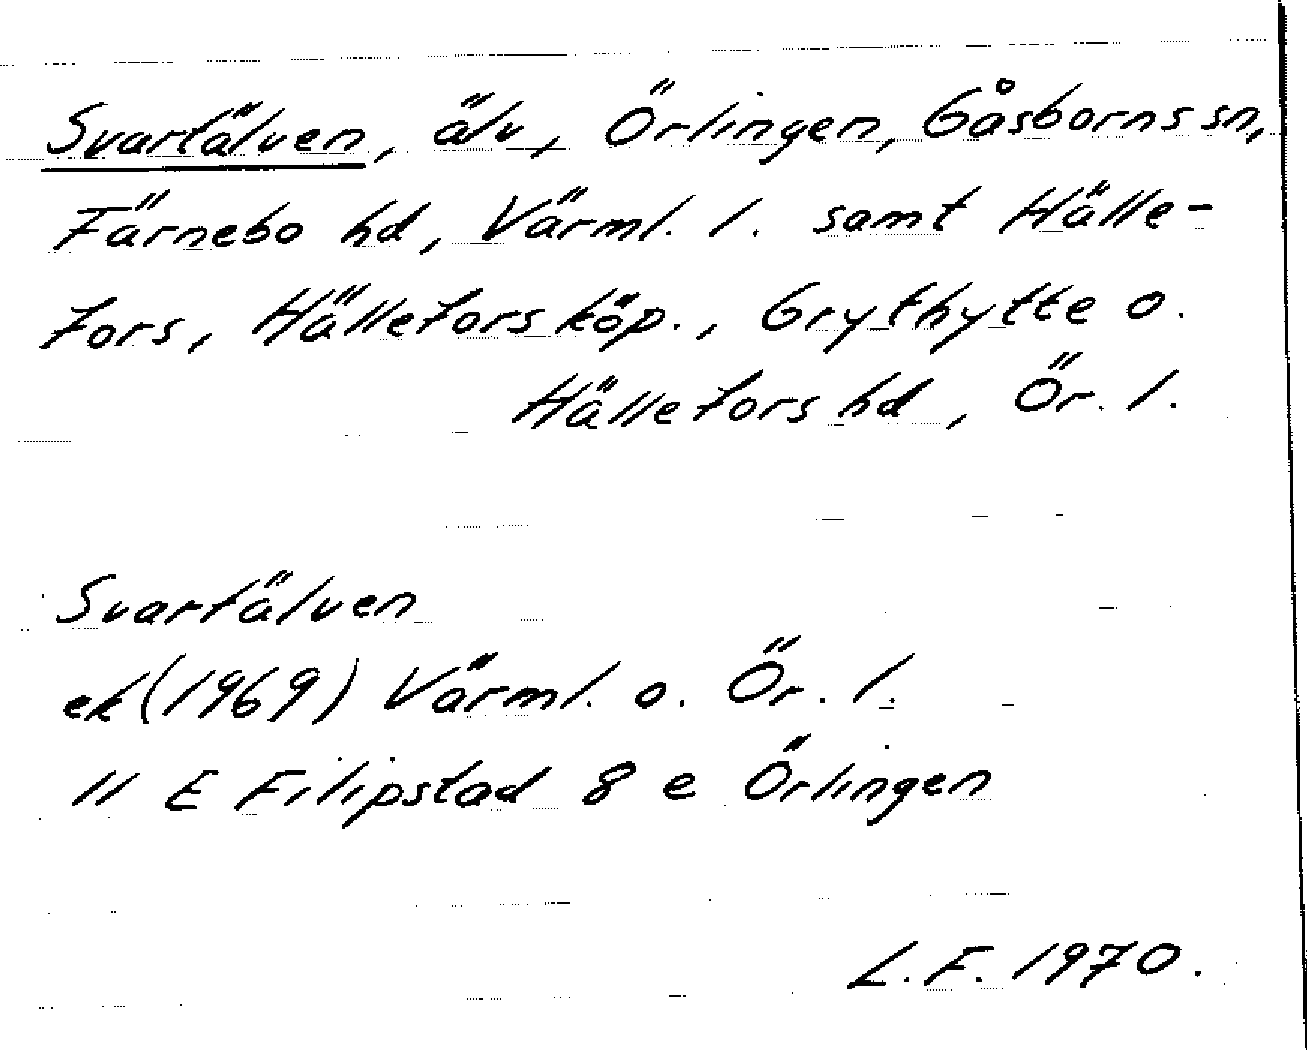 Svartälven, älv, Örlingen, Gåsborns sn,
Färnebo hd, Värml. l. samt Hälle-
fors, Hällefors köp., Grythytte o.
Hällefors hd, Ör. l.
Svartälven
ek (1969) Värml. o. Ör. l.
11 E Filipstad 8 e Örlingen
L.F. 1970.